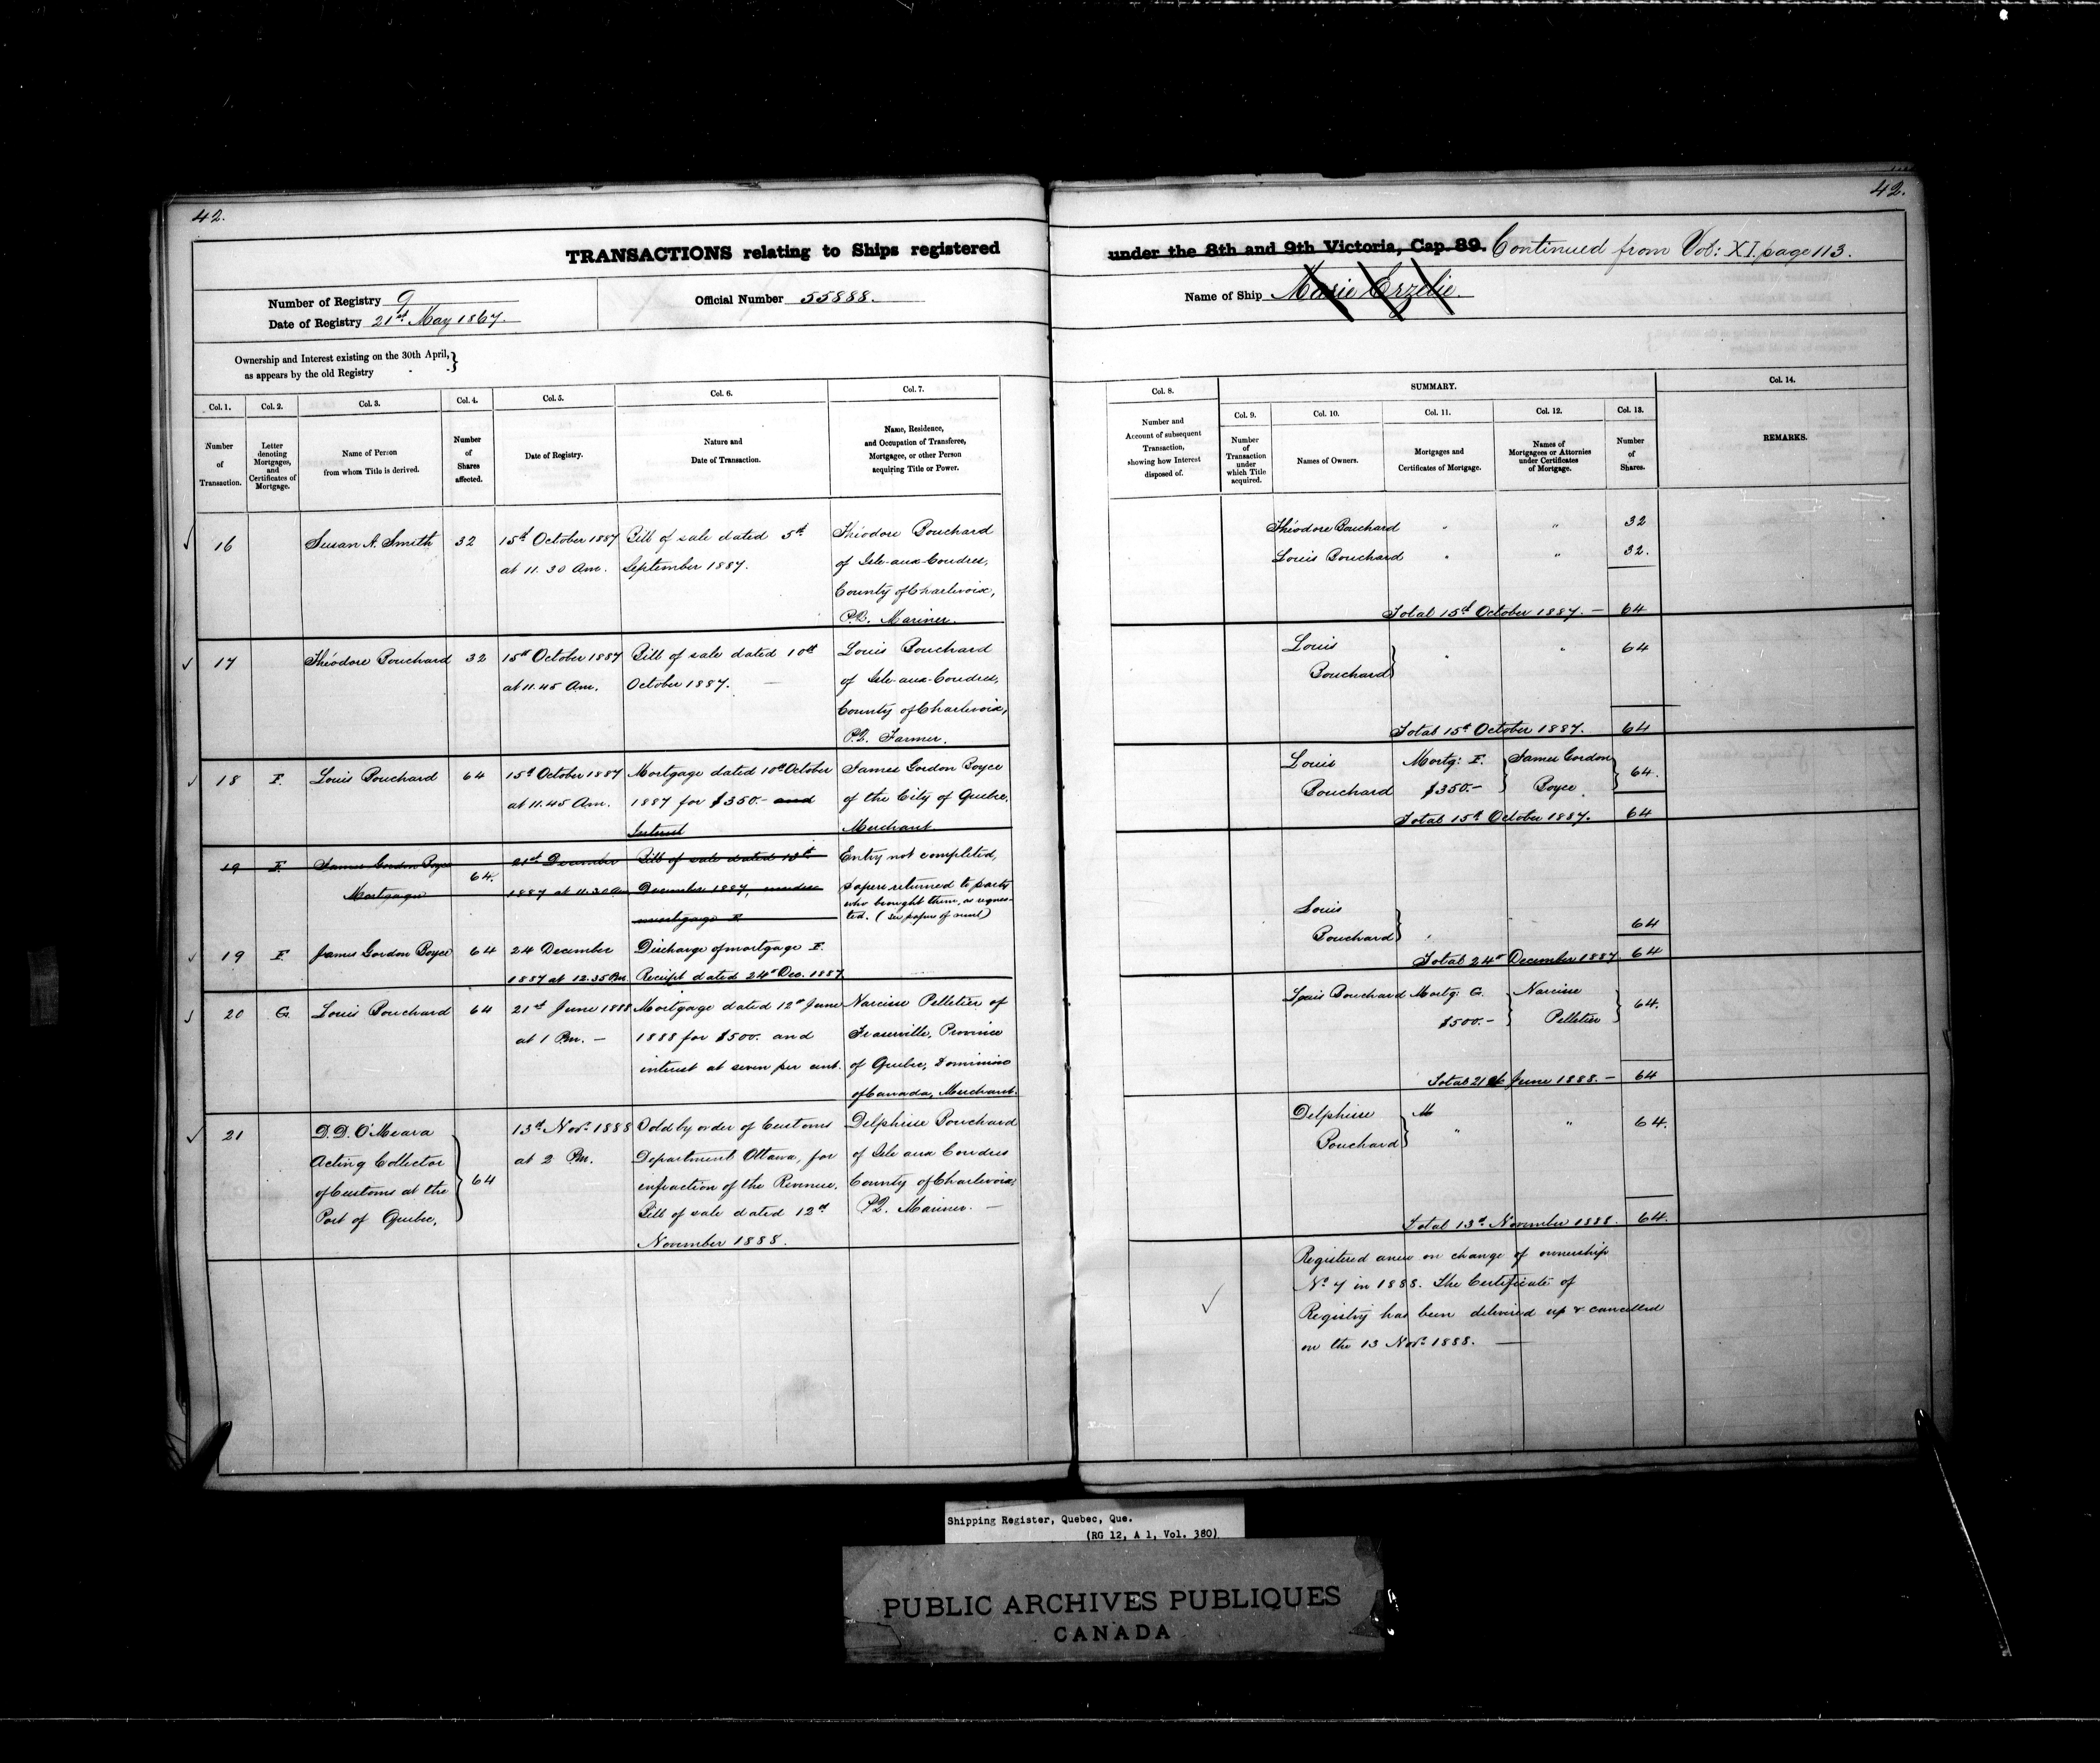 42.
42.
TRANSACTIONS relating to Ships registered under the 8th and 9th Victoria, Cap. 89. Continued from Vol: XI. page 113.
Number of Registry 9
Date of Registry 21st May 1867.
Official Number 55888.
Name of Ship Marie Erzelie.
Ownership and Interest existing on the 30th April,
as appears by the old Registry
Col. 1.
Number
of
Transaction.
Col. 2.
Letter
denoting
Mortgages,
and
Certificates of
Mortgage.
Col. 3.
Name of Person
from whom Title is derived.
Col. 4.
Number
of
Shares
affected.
Col. 5.
Date of Registry.
Col. 6.
Nature and
Date of Transaction.
Col. 7.
Name, Residence,
and Occupation of Transferee,
Mortgagee, or other Person
acquiring Title or Power.
Col. 8.
Number and
Account of subsequent
Transaction,
showing how Interest
disposed of.
SUMMARY.
Col. 9.
Number
of
Transaction
under
which Title
acquired.
Col. 10.
Names of Owners.
Col. 11.
Mortgages and
Certificates of Mortgage.
Col. 12.
Names of
Mortgagees or Attornies
under Certificates
of Mortgage.
Col. 13.
Number
of
Shares.
Col. 14.
REMARKS.
16
Susan A. Smith
32
15th October 1887
at 11.30 Am.
Bill of sale dated 5th
September 1887.
Théodore Bouchard
of Isle-aux-Coudres,
County of Charlevoix,
P.Q. Mariner.
Théodore Bouchard " " 32
Louis Bouchard " " 32.
Total 15th October 1887. — 64
17
Théodore Bouchard
32
15th October 1887
at 11.45 Am.
Bill of sale dated 10th
October 1887. —
Louis Bouchard
of Isle-aux-Coudres,
County of Charlevoix,
P.Q. Farmer.
Louis
Bouchard
" " 64
Total 15th October 1887. 64
18
F.
Louis Bouchard
64
15th October 1887
at 11.45 Am.
Mortgage dated 10th October
1887 for $350.- and
Interest
James Gordon Boyce
of the City of Quebec,
Merchant.
Louis
Bouchard
Mortg: F.
$350.-
James Gordon
Boyce
64.
Total 15th October 1887. 64
19
F.
James Gordon Boyce
Mortgagee
64.
21st December
1887 at 11.30 Am
Bill of sale dated 13th
December 1887, under
mortgage F
Entry not completed,
papers returned to party
who brought them, as reques-
ted. (See papers of vessel)
19
F.
James Gordon Boyce
64
24 December
1887 at 12.35 Pm.
Discharge of mortgage F.
Receipt dated 24th Dec. 1887
Louis
Bouchard
64
Total 24th December 1887 64
20
G.
Louis Bouchard
64
21st June 1888
at 1 Pm. —
Mortgage dated 12th June
1888 for $500. and
interest at seven per cent.
Narcisse Pelletier of
Fraserville, Province
of Quebec, Dominion
of Canada, Merchant.
Louis Bouchard
Mortg: G.
$500.-
Narcisse
Pelletier
64.
Total 21st June 1888. — 64
21
D.D. O'Meara
Acting Collector
of Customs at the
Port of Quebec,
64
13th Novr. 1888
at 2 Pm.
Sold by order of Customs
Department Ottawa, for
infraction of the Revenue.
Bill of sale dated 12th
November 1888.
Delphise Bouchard
of Isle aux Coudres
County of Charlevoix,
P.Q. Mariner. —
Delphise
Bouchard
M
" " 64.
Total 13th November 1888. 64.
Registered anew on change of ownership
No. 7 in 1888. The Certificate of
Registry has been delivered up & cancelled
on the 13 Novr. 1888. —
Shipping Register, Quebec, Que.
(RG 12, A 1, Vol. 380)
PUBLIC ARCHIVES PUBLIQUES
CANADA